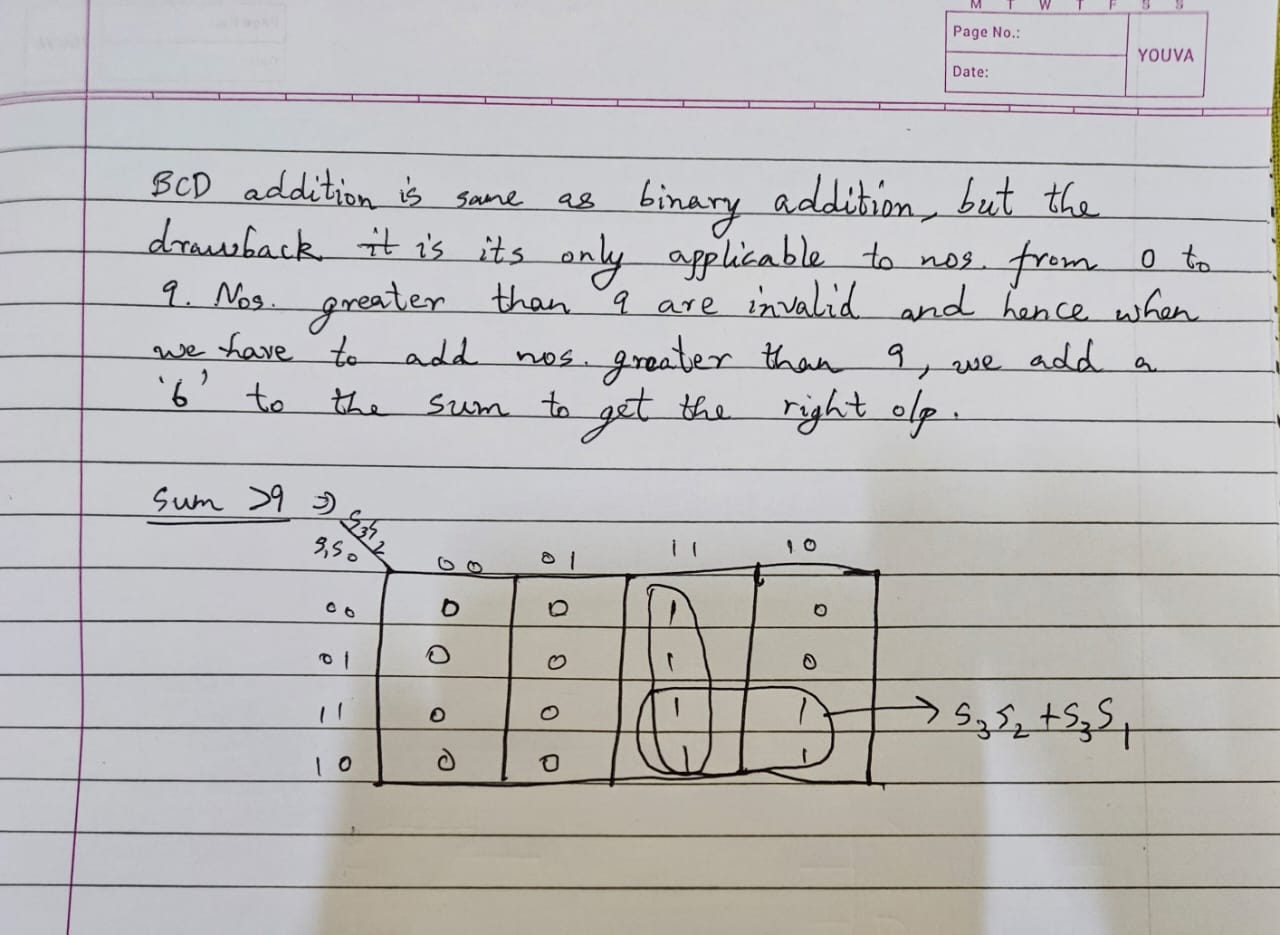 M T W T F S S
Page No.:
YOUVA
Date:
BCD addition is same as binary addition, but the
drawback it is its only applicable to nos. from 0 to
9. Nos. greater than 9 are invalid and hence when
we have to add nos. greater than 9, we add a
'6' to the sum to get the right o/p.
Sum >9 ⇒
S₃S₂
S₁S₀
00 01 11 10
00 0 0 1 0
01 0 0 1 0
11 0 0 1 1 → S₃S₂ + S₃S₁
10 0 0 1 1